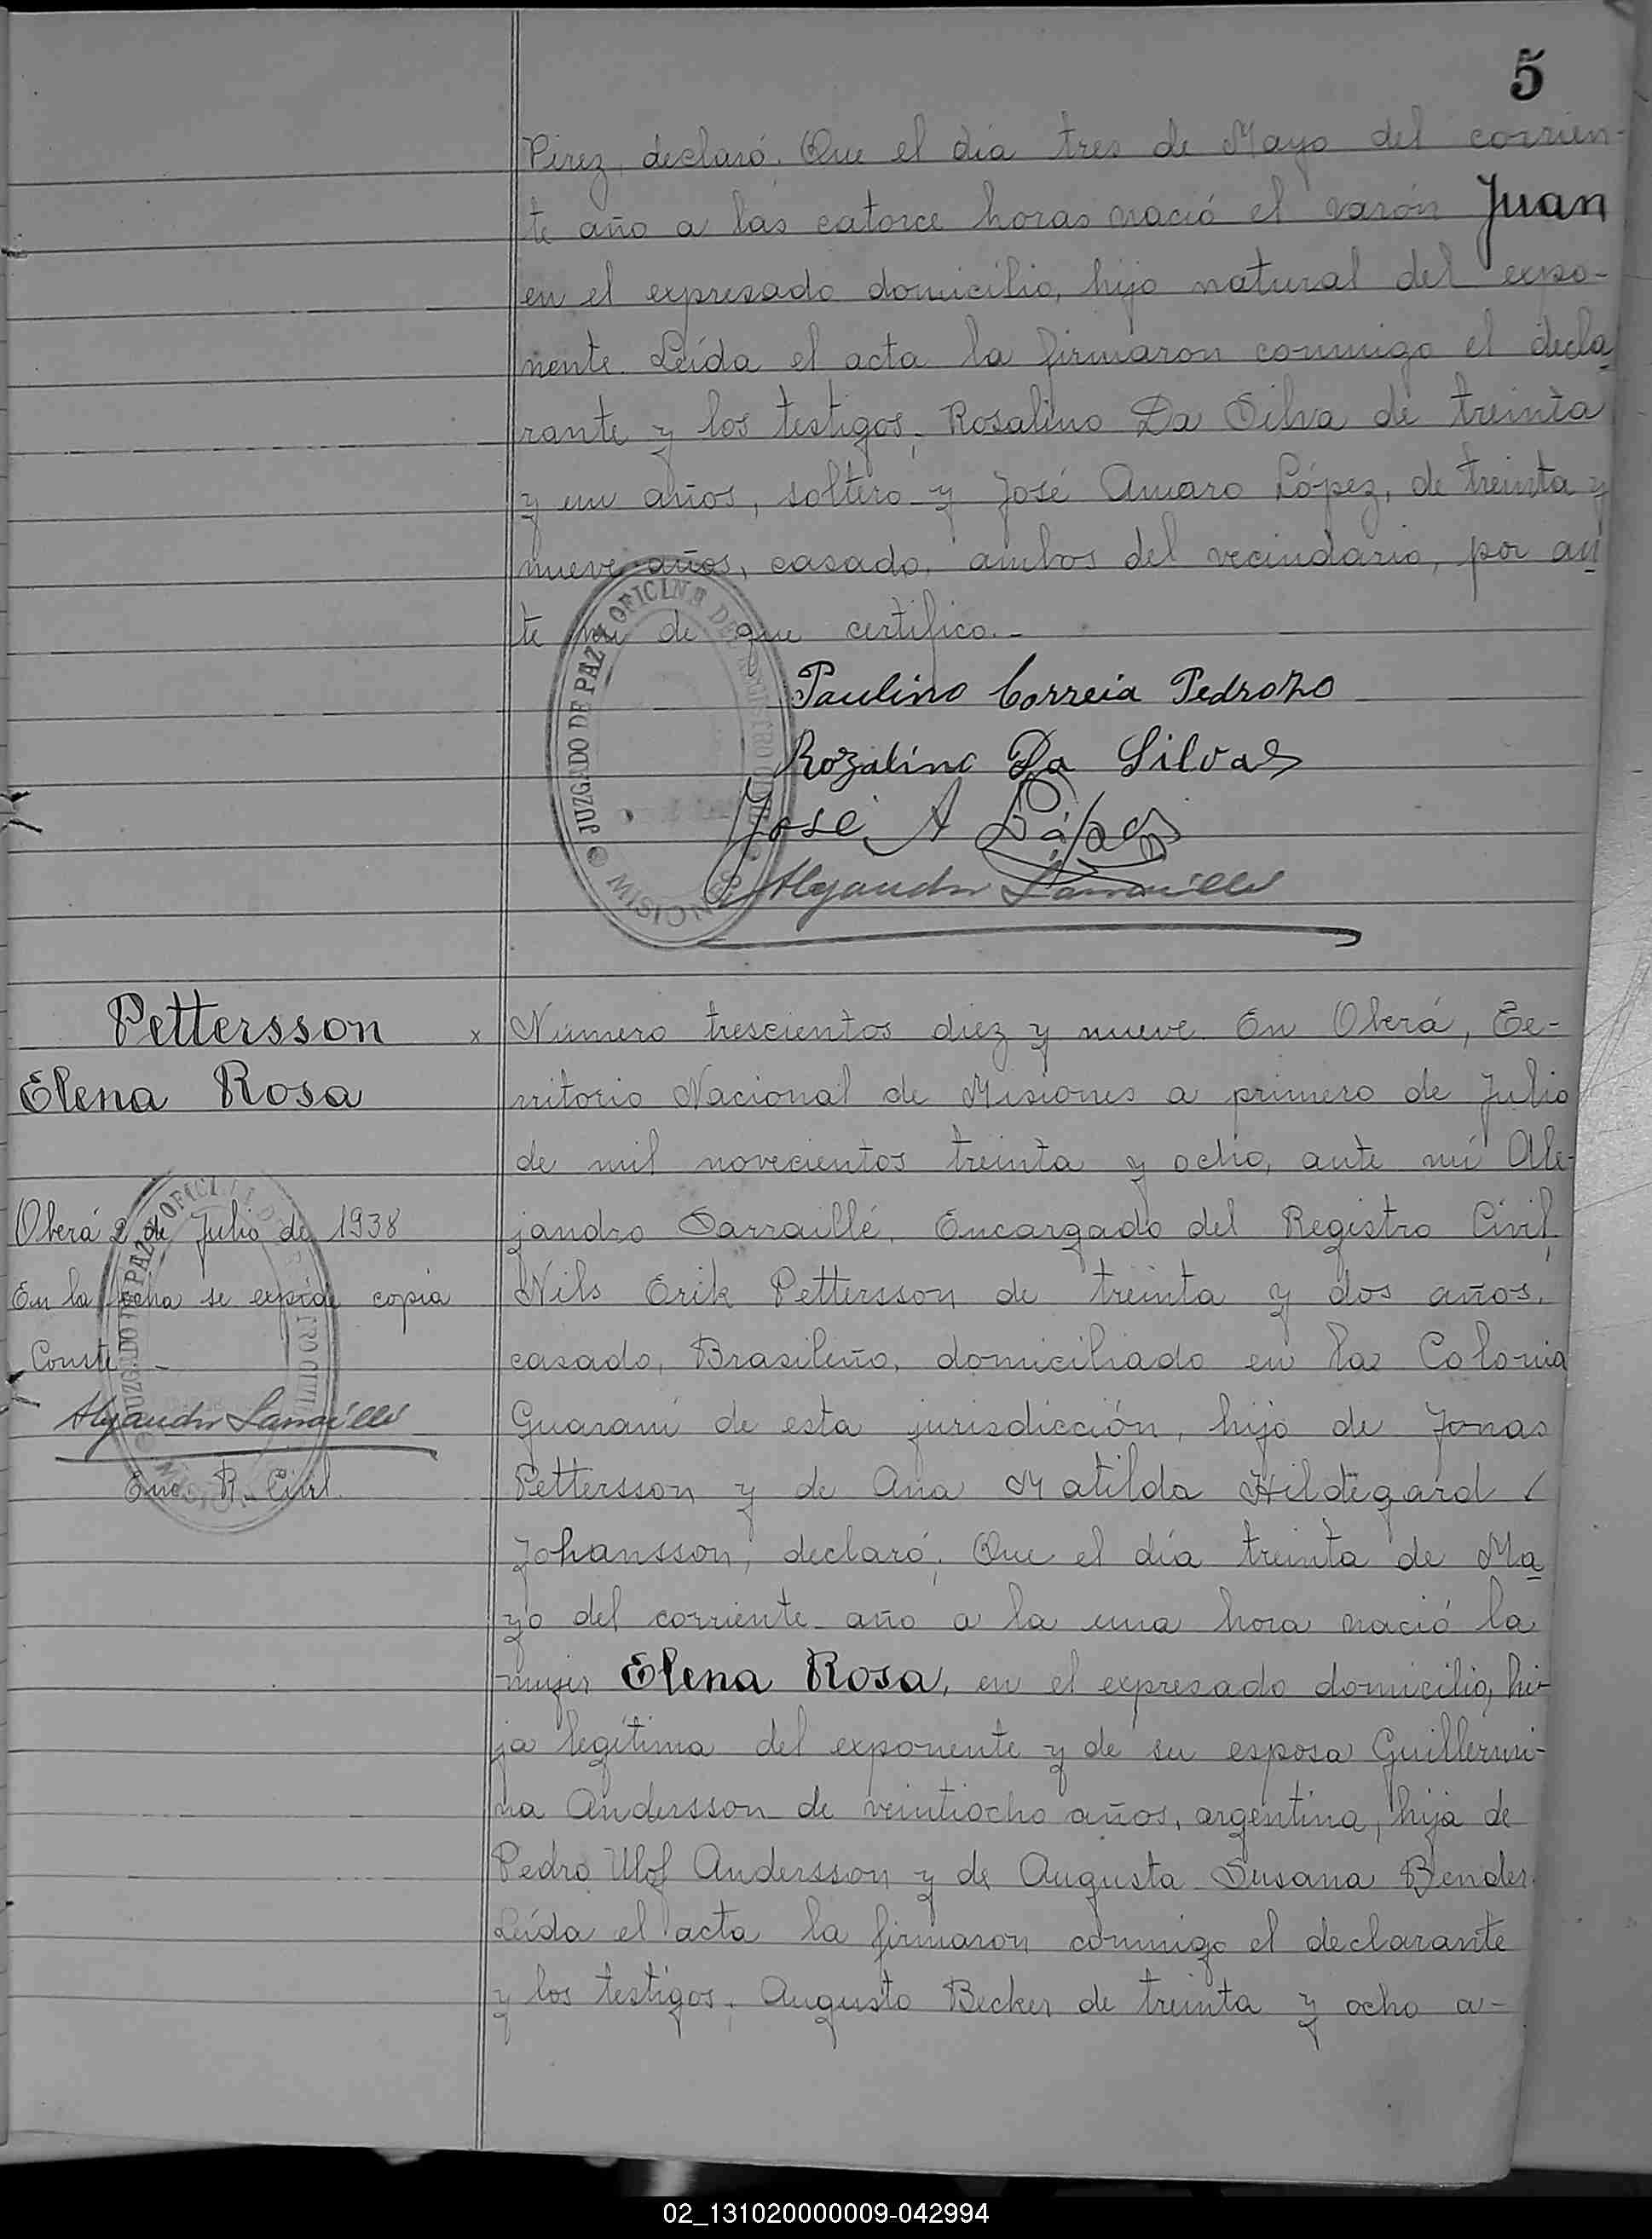 5
Pirez, declaró. Que el día tres de Mayo del corrien-
te año a las catorce horas nació el varón Juan
en el expresado domicilio, hijo natural del expo-
nente. Leída el acta la firmaron conmigo el decla
rante y los testigos, Rosalino Da Silva de treinta
y un años, soltero y José Amaro López, de treinta y
nueve años, casado, ambos del vecindario, por an
te mi de que certifico.-
Paulino Correia Pedrozo
Rozalino Da Silvas
José A López
Alejandro Sarraillé
JUZGADO DE PAZ Y OFICINA DEL REGISTRO CIVIL
MISIONES
Pettersson
Elena Rosa
Oberá 2 de Julio de 1938
En la fecha se expide copia
Conste -
Alejandro Sarraillé
Enc. R. Civil.
x Número trescientos diez y nueve. En Oberá, Te-
rritorio Nacional de Misiones a primero de Julio
de mil novecientos treinta y ocho, ante mí Ale-
jandro Sarraillé, Encargado del Registro Civil,
Nils Erik Pettersson de treinta y dos años,
casado, Brasileño, domiciliado en la Colonia
Guaraní de esta jurisdicción, hijo de Jonas
Pettersson y de Ana Matilda Hildegard
Johansson, declaró; Que el día treinta de Ma
yo del corriente año a la una hora nació la
mujer Elena Rosa, en el expresado domicilio, hi-
ja legítima del exponente y de su esposa Guillermi-
na Andersson de veintiocho años, argentina, hija de
Pedro Ulof Andersson y de Augusta Susana Bender.
Leída el acta la firmaron conmigo el declarante
y los testigos, Augusto Becker de treinta y ocho a-
02_131020000009-042994